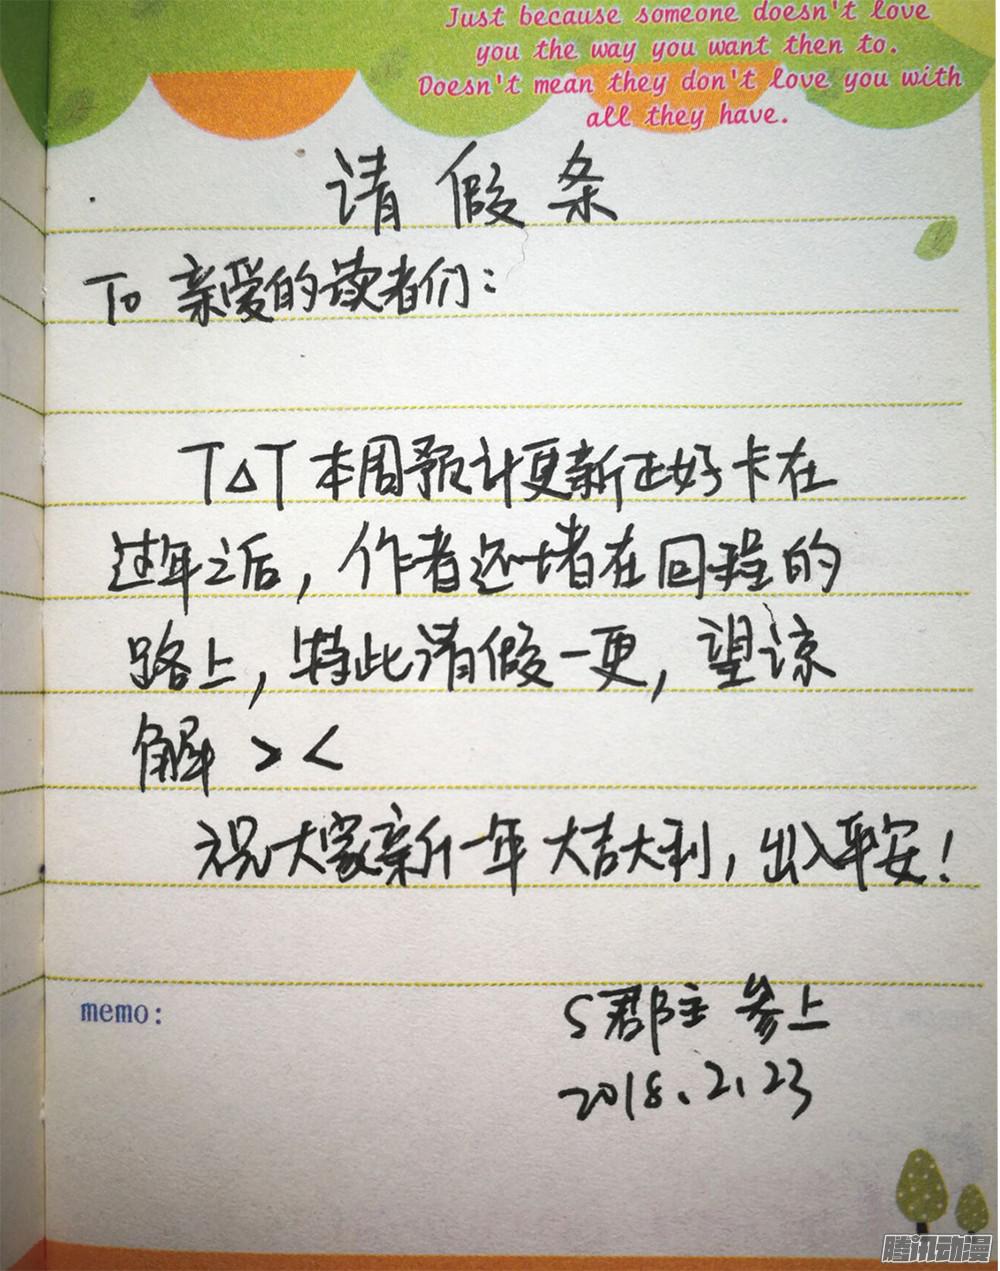 Just because someone doesn't love
you the way you want then to.
Doesn't mean they don't love you with
all they have.
请假条
To 亲爱的读者们:
TΔT 本周预计更新正好卡在
过年之后,作者还堵在回程的
路上,特此请假一更,望谅
解 > <
祝大家新一年大吉大利,出入平安!
memo:
S郡主 参上
2018.2.23
腾讯动漫